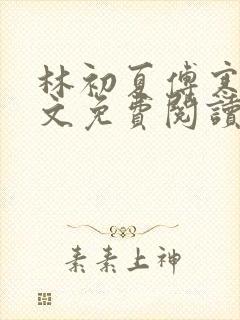 林初夏傅寒
文免費閱讀
素素上神